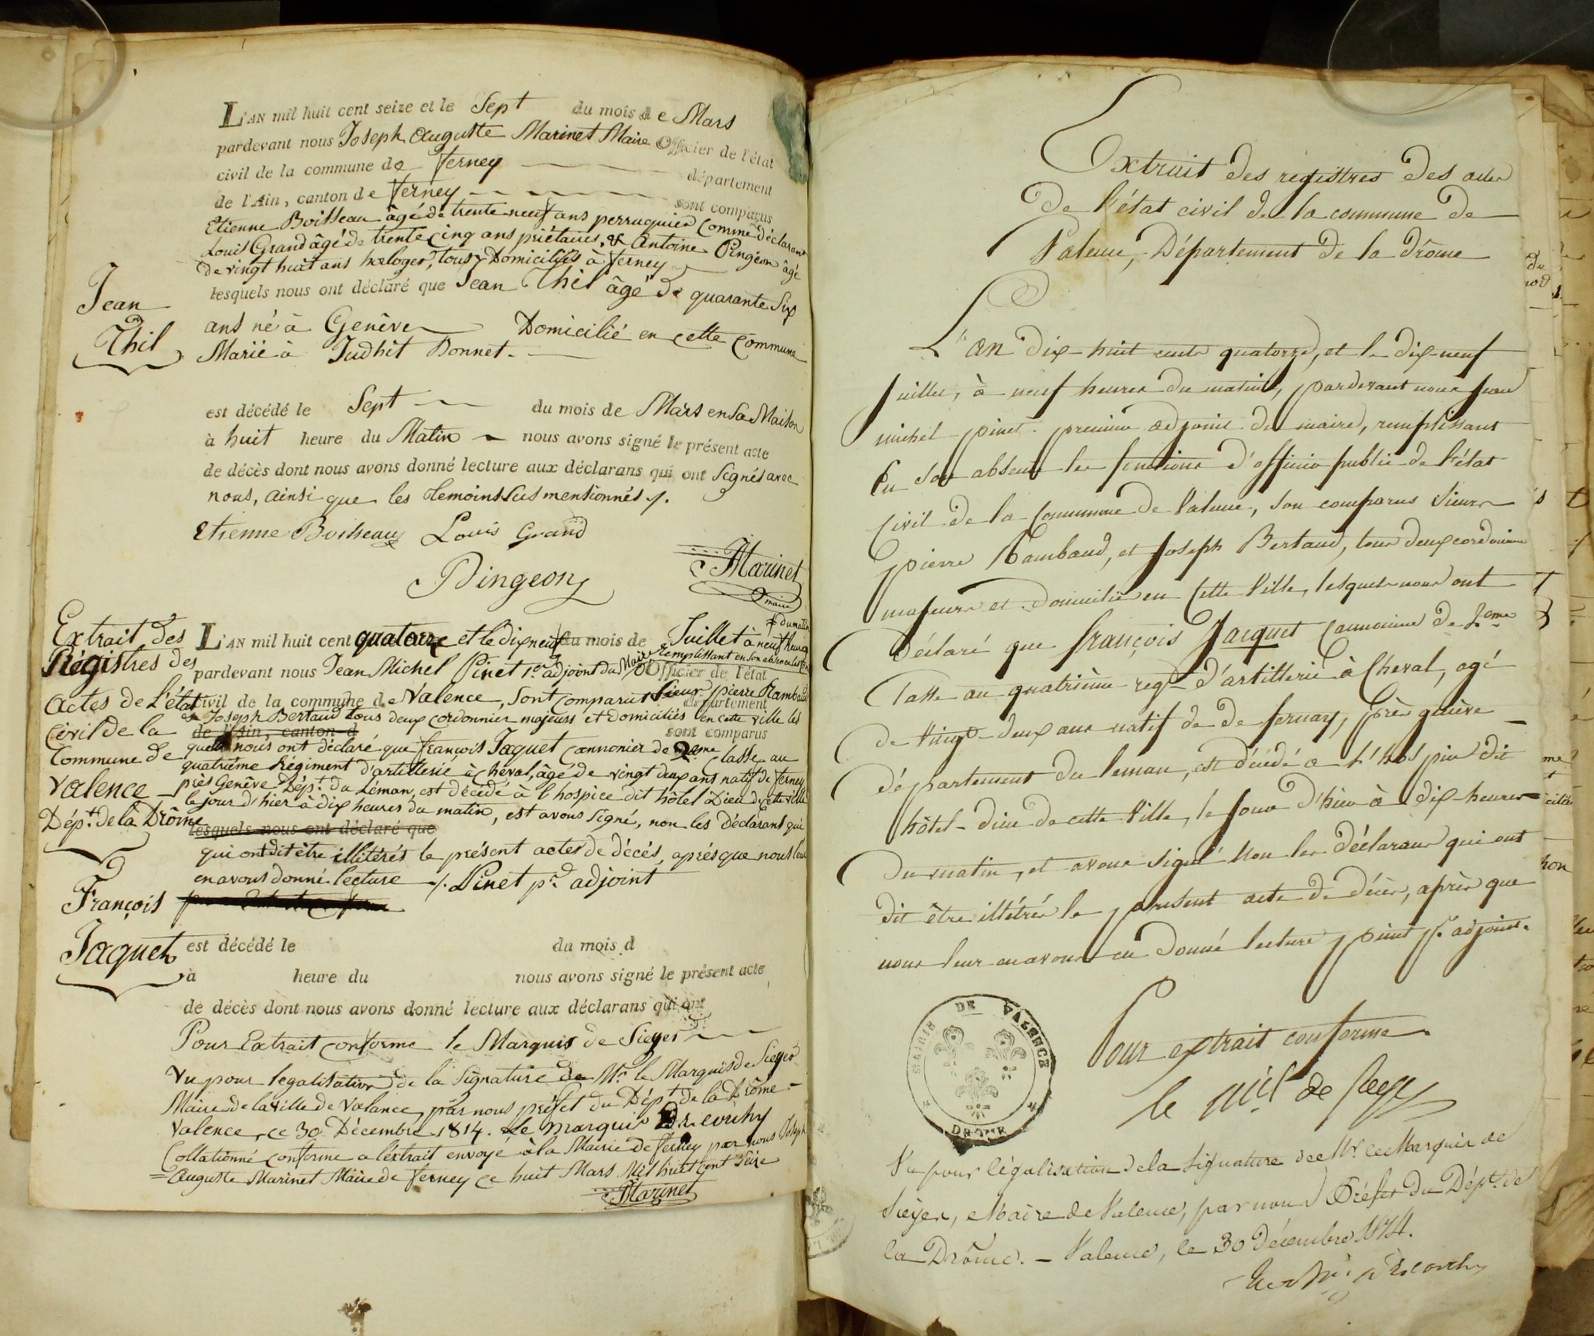 L'AN mil huit cent seize et le Sept du mois de Mars
pardevant nous Joseph Auguste Marinet Maire Officier de l'état
civil de la commune de Ferney département
de l'Ain, canton de Ferney sont comparus
Etienne Boisseau âgé de trente neuf ans perruquier comme déclarant
Louis Grand âgé de trente cinq ans , & Antoine Pingeon âgé
de vingt huit ans horloger, tous Domiciliés à Ferney
lesquels nous ont déclaré que Jean Thil âgé de quarante Six
ans né à Genêve Domicilié en cette commune
Marié à Judhit Donnet.
Jean
Thil
est décédé le Sept du mois de Mars en Sa Maison
à huit heure du Matin nous avons signé le présent acte
de décès dont nous avons donné lecture aux déclarans qui ont Signés avec
nous, ainsi que les témoins sus mensionnés
Etienne Boisseau Louis Grand
Pingeon
JMarinet
maire
Extrait des
Régistres des
actes de l'état
civil de la
Commune de
Valence
Dépt. de la Drôme
François
Jaquet
L'AN mil huit cent quatorze et le dix neuf du mois de Juillet à neuf heures
du matin
pardevant nous Jean Michel Pinet 1er adjoint du Maire Remplissant en son absence
Officier de l'état
civil de la commune de Valence, Sont comparus Sieur pierre Rambaud
département
et Joseph Bertaud tous deux cordonnier majeurs et domiciliés en cette ville les
de l'Ain, canton d sont comparus
quels nous ont déclaré que françois Jaquet cannonier de 2eme classe au
quatrième Régiment d'artillerie à cheval, âgé de vingt deux ans natif de Ferney
près Genêve Dépt. du Léman, est décédé à l'hospice dit hôtel Dieu de cette ville
le jour d'hier à dix heures du matin, et avons signé, non les Déclarants qui
lesquels nous ont déclaré que
qui ont dit être illitérés le présent actes de décés, après que nous leur
en avons donné lecture Pinet pr. adjoint
est décédé le du mois d
à heure du nous avons signé le présent acte
de décès dont nous avons donné lecture aux déclarans qui ont
Pour Extrait conforme le Marquis de Sieyes
Vu pour legalisation de la Signature de Mr. le Marquis de Sieyes
Maire de la ville de Valance, par nous préfet du Dépt. de la Drôme
Valence, ce 30 Décembre 1814. Le marquis
Collationné conforme a l'extrait envoyé à la Mairie de Ferney par nous Joseph
Auguste Marinet Maire de Ferney ce huit Mars Mil huit cent Seize
JMarinet
Extrait des registres des actes
De l'état civil de la commune de
Valence, Département de la Drôme
L'an dix-huit cent quatorze, et le dix-neuf
Juillet, à neuf heures du matin, pardevant nous Jean
michel pinet premier adjoint du maire, remplissant
En son absence les fonctions d'officier public de l'état
Civil de la Commune de Valence, son comparus Sieurs
pierre Rambaud, et Joseph Bertaud, tous deux cordonniers
majeurs et domiciliés en cette Ville, lesquels nous ont
Déclaré que françois Jacquet Cannonier de 2eme
Classe au quatrième regt. d'artillerie à Cheval, agé
de Vingt deux ans natif de de fernay, près genève
département du leman, est décédé a l'hospice dit
hôtel-dieu de cette Ville, le jour d'hier à dix heures
Du matin, et avons signé Non les déclarans qui ont
dit être illétrés le présent acte de décès, après que
nous leur en avons eu donné lecture pinet pr. adjoint.
Pour extrait conforme
le Mis de Sieyes
MAIRIE DE VALENCE
DROME
Vu pour légalisation de la signature de Mr. le Marquis de
Sieyes, Maire de Valence, par nous Préfet du Dépt. de
la Drôme. - Valence, le 30 décembre 1814.